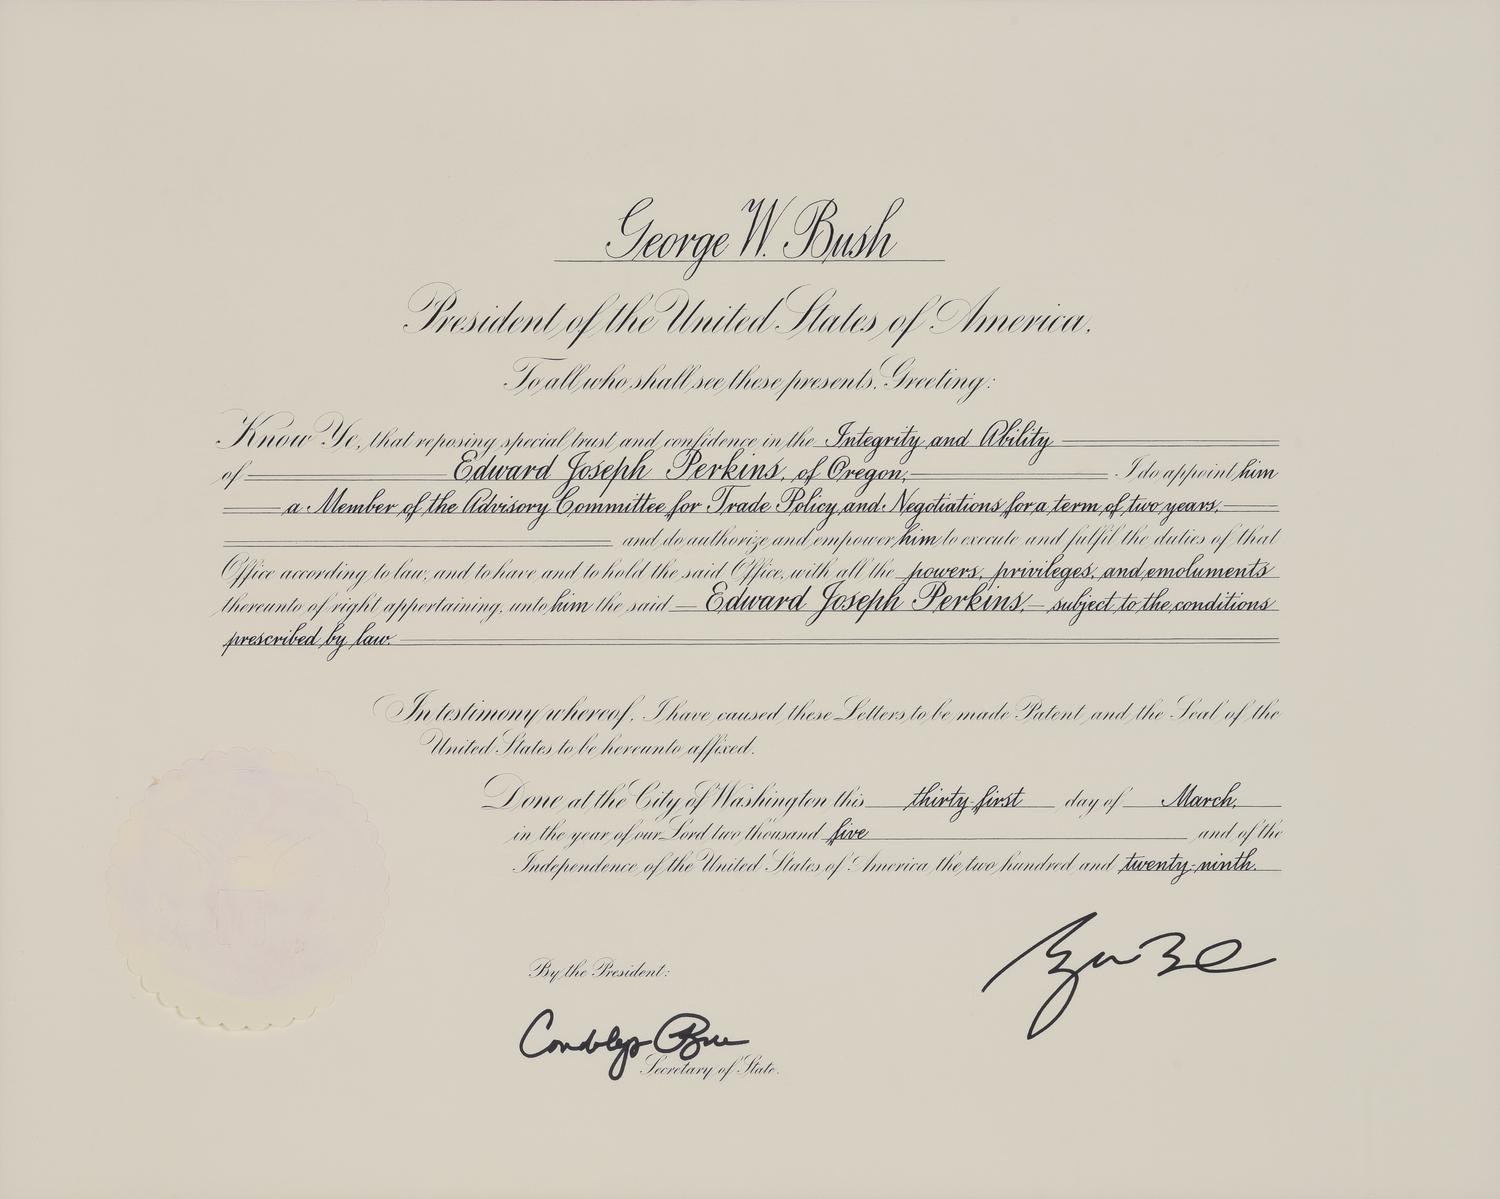 George W. Bush
President of the United States of America.
To all who shall see these presents, Greeting:
Know Ye, that reposing special trust and confidence in the Integrity and Ability
of Edward Joseph Perkins, of Oregon, I do appoint him
a Member of the Advisory Committee for Trade Policy and Negotiations for a term of two years,
and do authorize and empower him to execute and fulfil the duties of that
Office according to law, and to have and to hold the said Office, with all the powers, privileges, and emoluments
thereunto of right appertaining, unto him the said Edward Joseph Perkins, subject to the conditions
prescribed by law.
In testimony whereof, I have caused these Letters to be made Patent and the Seal of the
United States to be hereunto affixed.
Done at the City of Washington this thirty-first day of March,
in the year of our Lord two thousand five and of the
Independence of the United States of America the two hundred and twenty-ninth.
By the President:
Secretary of State.